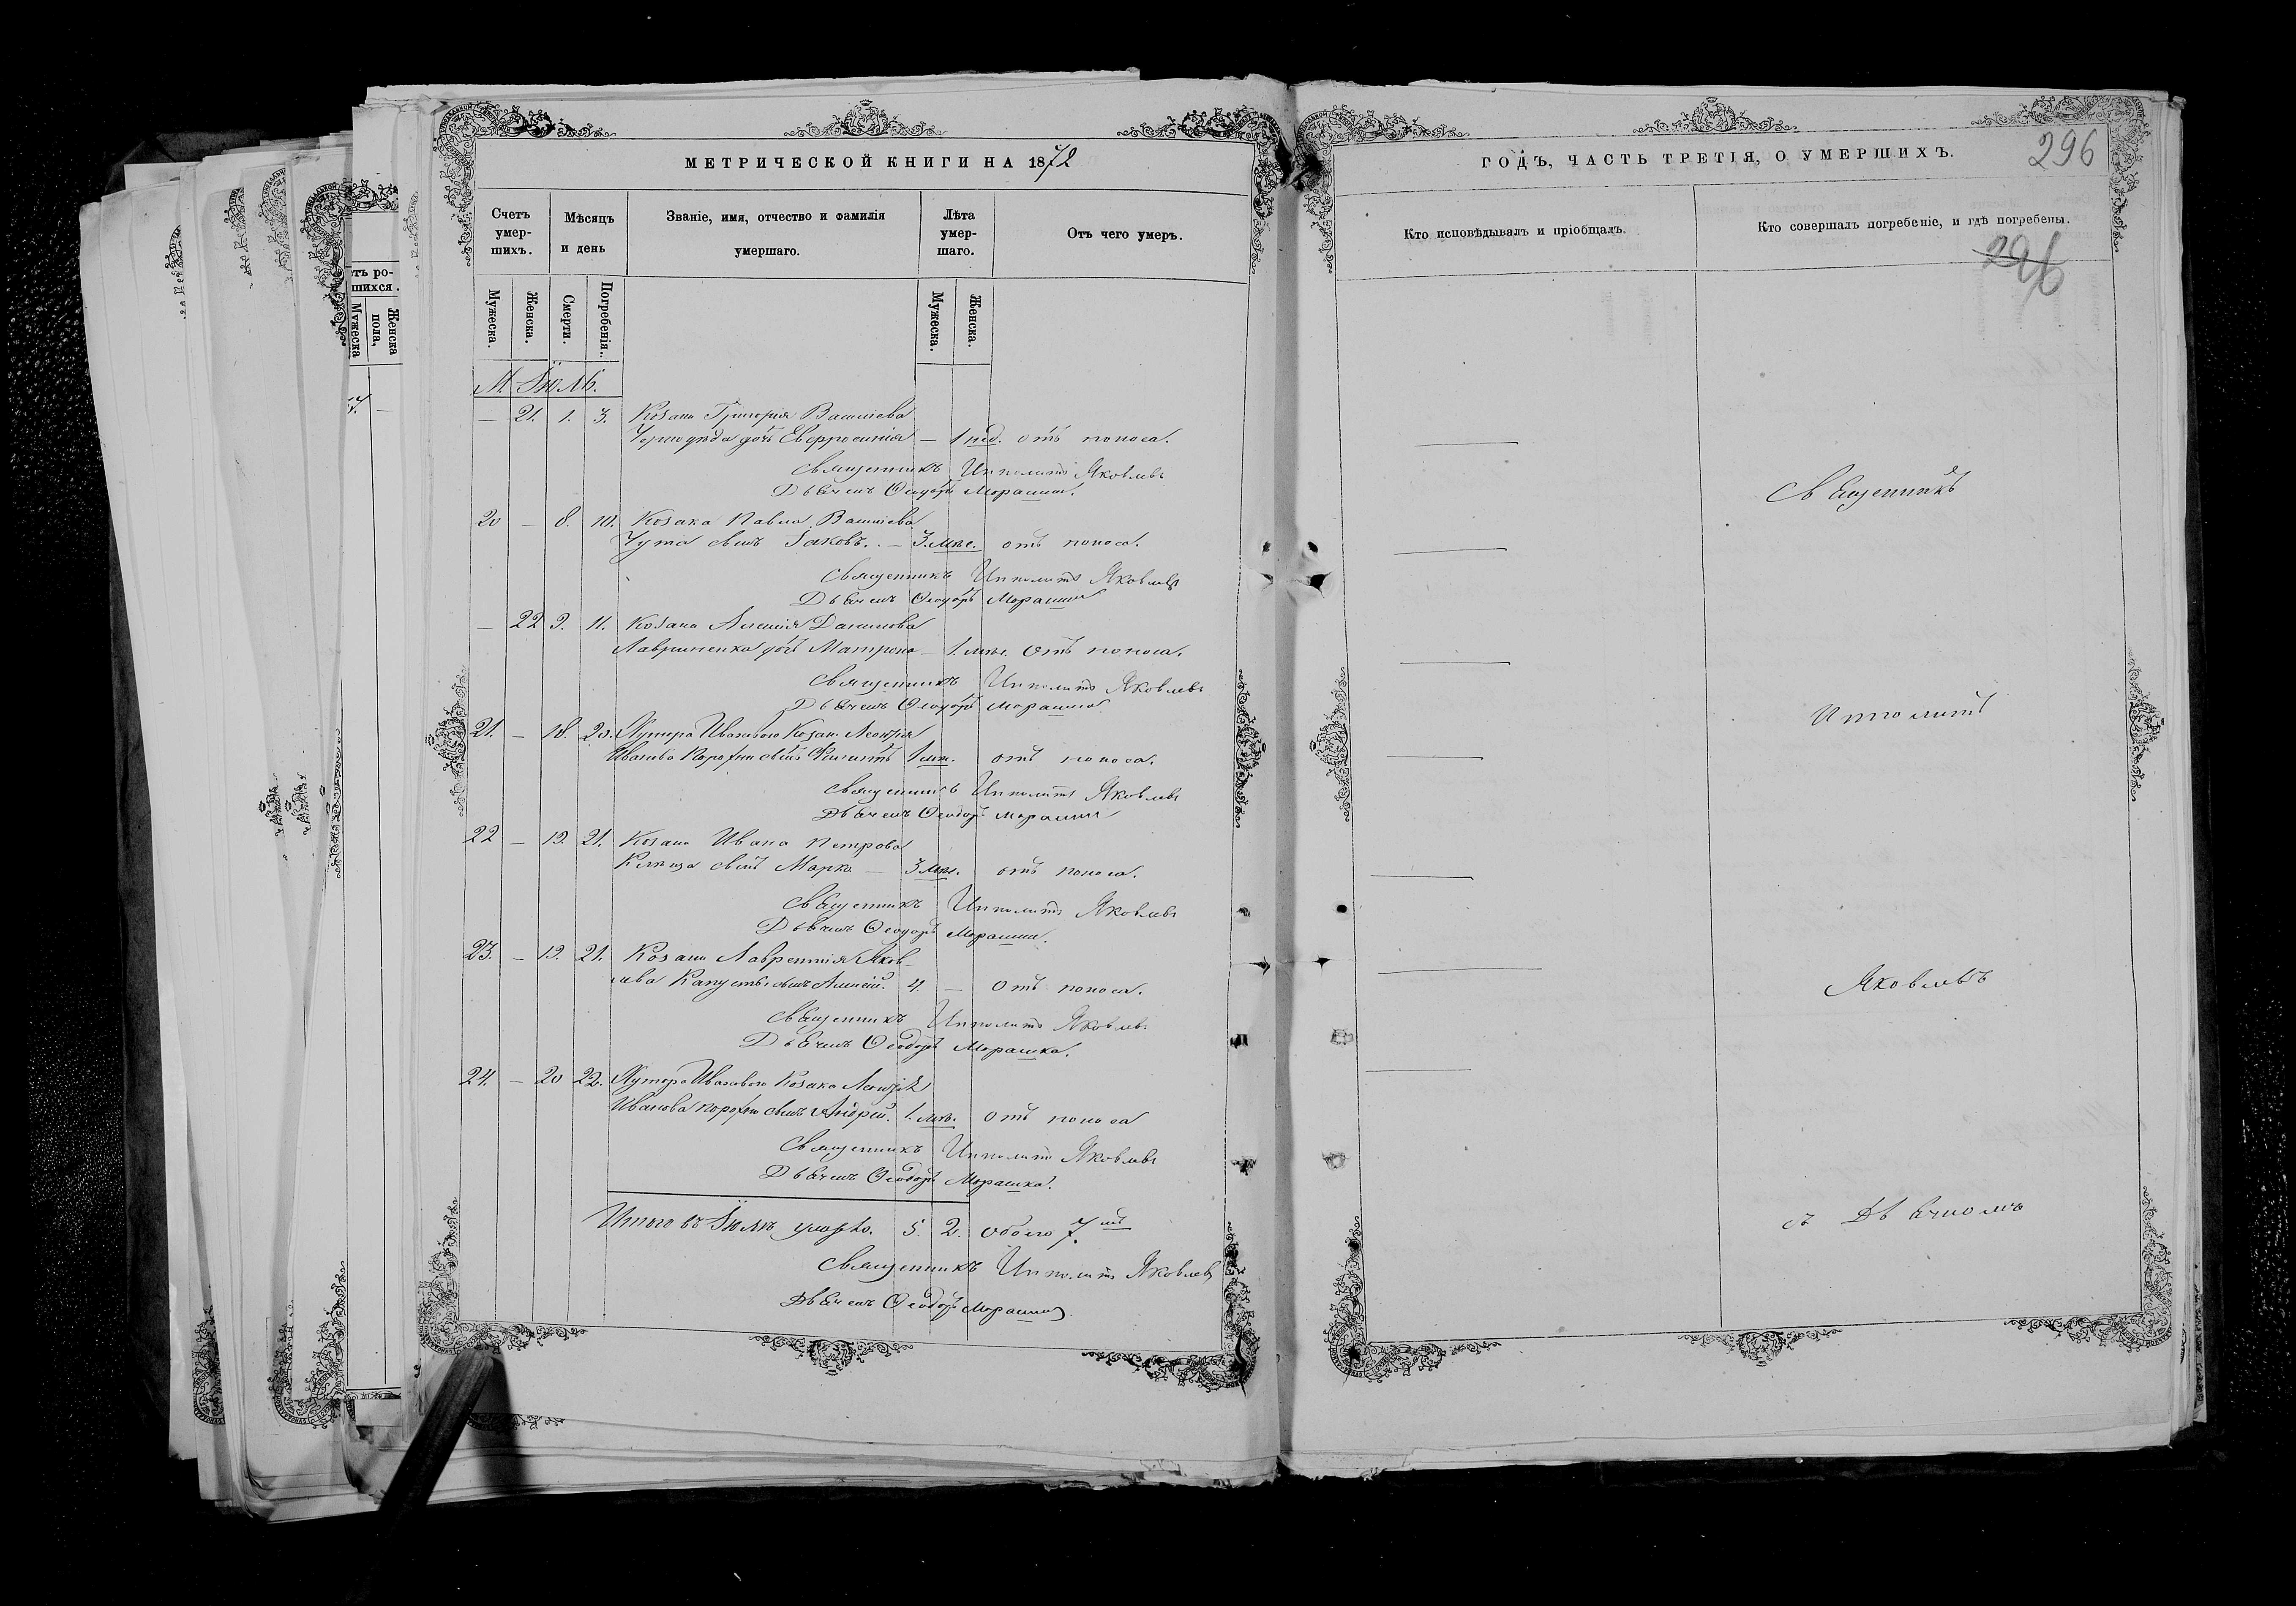 МЕТРИЧЕСКОЙ КНИГИ НА 1872
Счетъ умер-шихъ.
Мѣсяцъ и день
Званіе, имя, отчество и фамилія умершаго.
Лѣта умер-шаго.
Отъ чего умеръ.
Мужеска.
Женска.
Смерти.
Погребенія.
Мужеска.
Женска.
М. Іюль.
— 21. 1. 3. Козака Григорія Василіева
дочь Евфросинія — 1 нед. отъ поноса.
Священникъ Ипполитъ Яковлевъ
Дьячекъ Ѳеодоръ Морашко.
20 — 8. 10. Козака Павла Василіева
Чута сынъ Іаковъ. — 3. мѣс. отъ поноса.
Священникъ Ипполитъ Яковлевъ
Дьячекъ Ѳеодоръ Морашко
— 22 9. 11. Козака Алексія Данилова
Лавриненка дочь Матрона — 1. мѣс. Отъ поноса.
Священникъ Ипполитъ Яковлевъ
Дьячекъ Ѳеодоръ Морашко
21. — 18. 20. Хутора Козака
Иванова сынъ 1 мѣс. отъ поноса.
Священникъ Ипполитъ Яковлевъ
Дьячекъ Ѳеодоръ Морашко
22 — 19. 21. Козака Ивана Петрова
сынъ Марко — 3 мѣс. отъ поноса.
Священникъ Ипполитъ Яковлевъ
Дьячекъ Ѳеодоръ Морашко.
23. — 19. 21. Козака Лаврентія Яков-
лева сынъ Алексій. 4. — Отъ поноса.
Священникъ Ипполитъ Яковлевъ
Дьячекъ Ѳеодоръ Морашко.
24. — 20 22. Хутора Козака
Иванова сынъ Андрей. 1. мѣс. отъ поноса
Священникъ Ипполитъ Яковлевъ
Дьячекъ Ѳеодоръ Морашко.
Итого въ Іюлѣ умерло. 5. 2. обоего 7.
Священникъ Ипполитъ Яковлевъ
Дьячекъ Ѳеодоръ Морашко
етъ ро-
шихся.
Мужеска
Женска
пола,
ГОДЪ, ЧАСТЬ ТРЕТІЯ, О УМЕРШИХЪ.
296
Кто исповѣдывалъ и пріобщалъ.
Кто совершалъ погребеніе, и гдѣ погребены.
296
Священникъ
Ипполитъ
Яковлевъ
съ Дьячкомъ